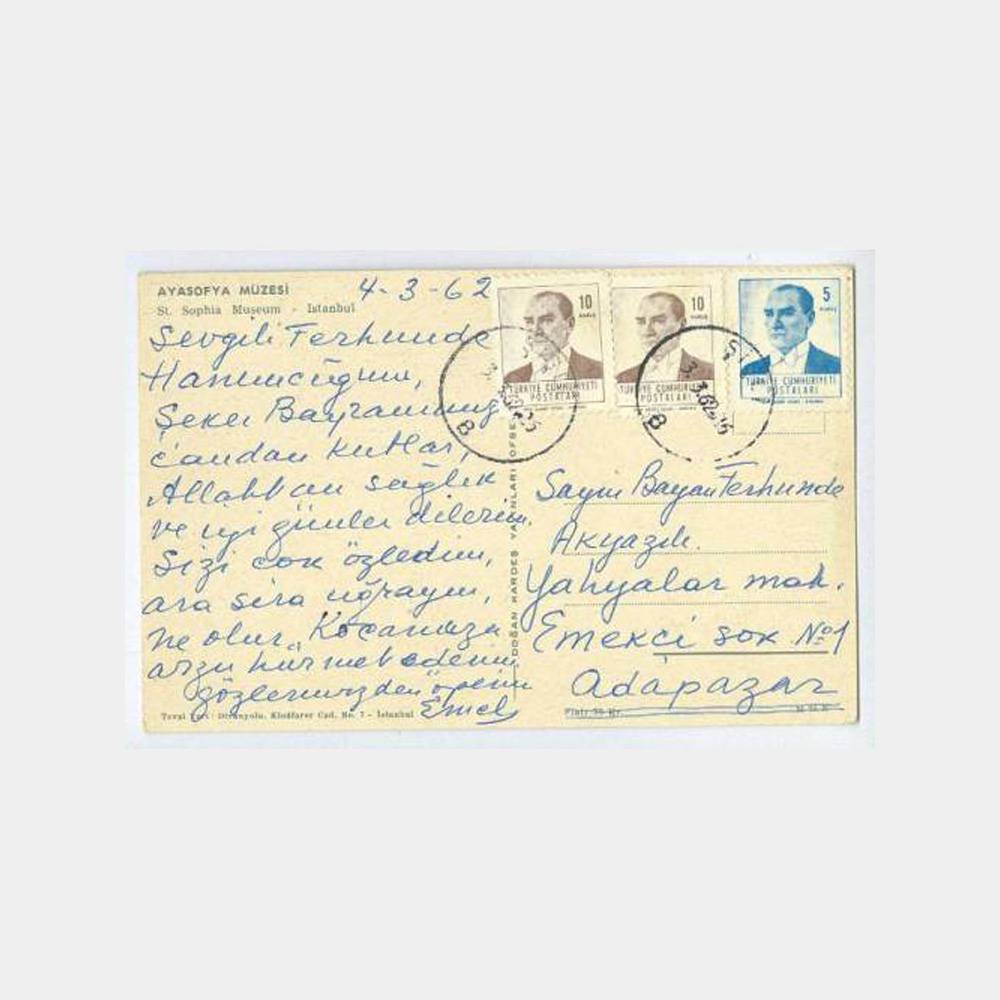 AYASOFYA MÜZESİ
St. Sophia Museum - Istanbul
4-3-62
Sevgili Ferhunde
Hanımcığım,
Şeker Bayramınızı
candan kutlar,
Allahtan sağlık
ve iyi günler dilerim.
Sizi çok özledim,
ara sıra uğrayın,
ne olur. Kocanıza
arzu hürmet ederim
gözlerinizden öperim
Emel
10
KURUŞ
TÜRKİYE CUMHURİYETİ
POSTALARI
10
KURUŞ
TÜRKİYE CUMHURİYETİ
POSTALARI
5
KURUŞ
TÜRKİYE CUMHURİYETİ
POSTALARI
DOĞAN KARDEŞ YAYINLARI OFSE
Sayın Bayan Ferhunde
Akyazılı.
Yahyalar mah.
Emekçi sok. No 1
Adapazar
Cad. No. 7 - Istanbul